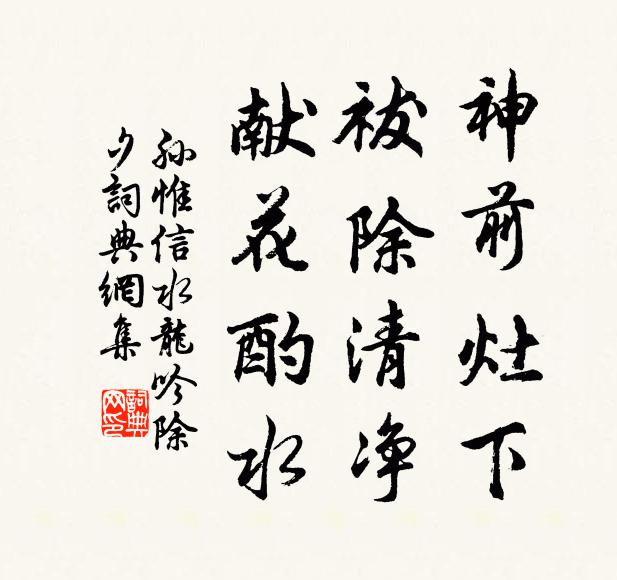 神前灶下
祓除清净
献花酌水
孙惟信水龍吟除
夕詞典網集
詞典
网印